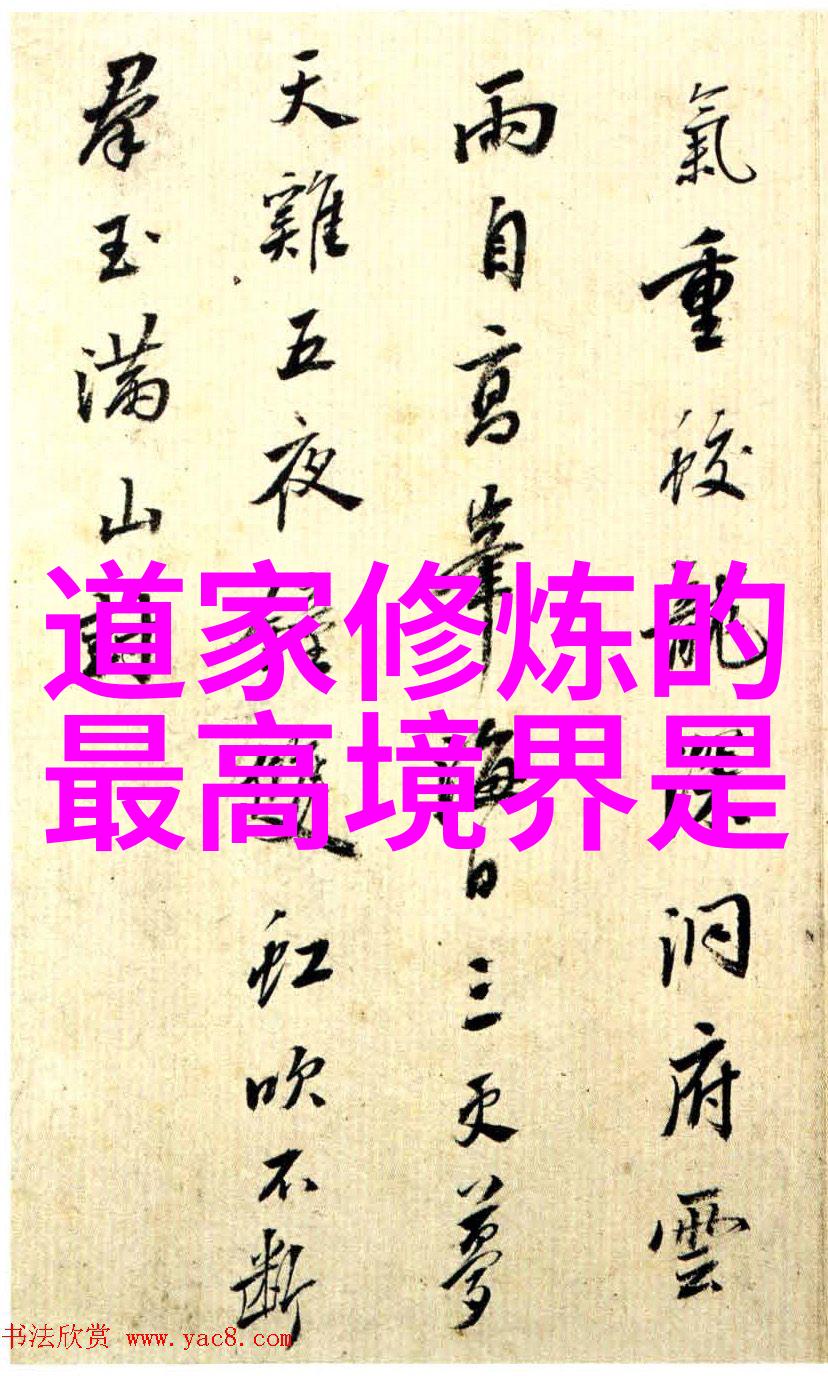 氣重蛟龍深洞府雲
雨自高峯海日三更夢
天雞五夜鐘雙虹吹不斷
羣玉滿山
道家修炼的
最高境界是
书法欣赏 www.yac8.com